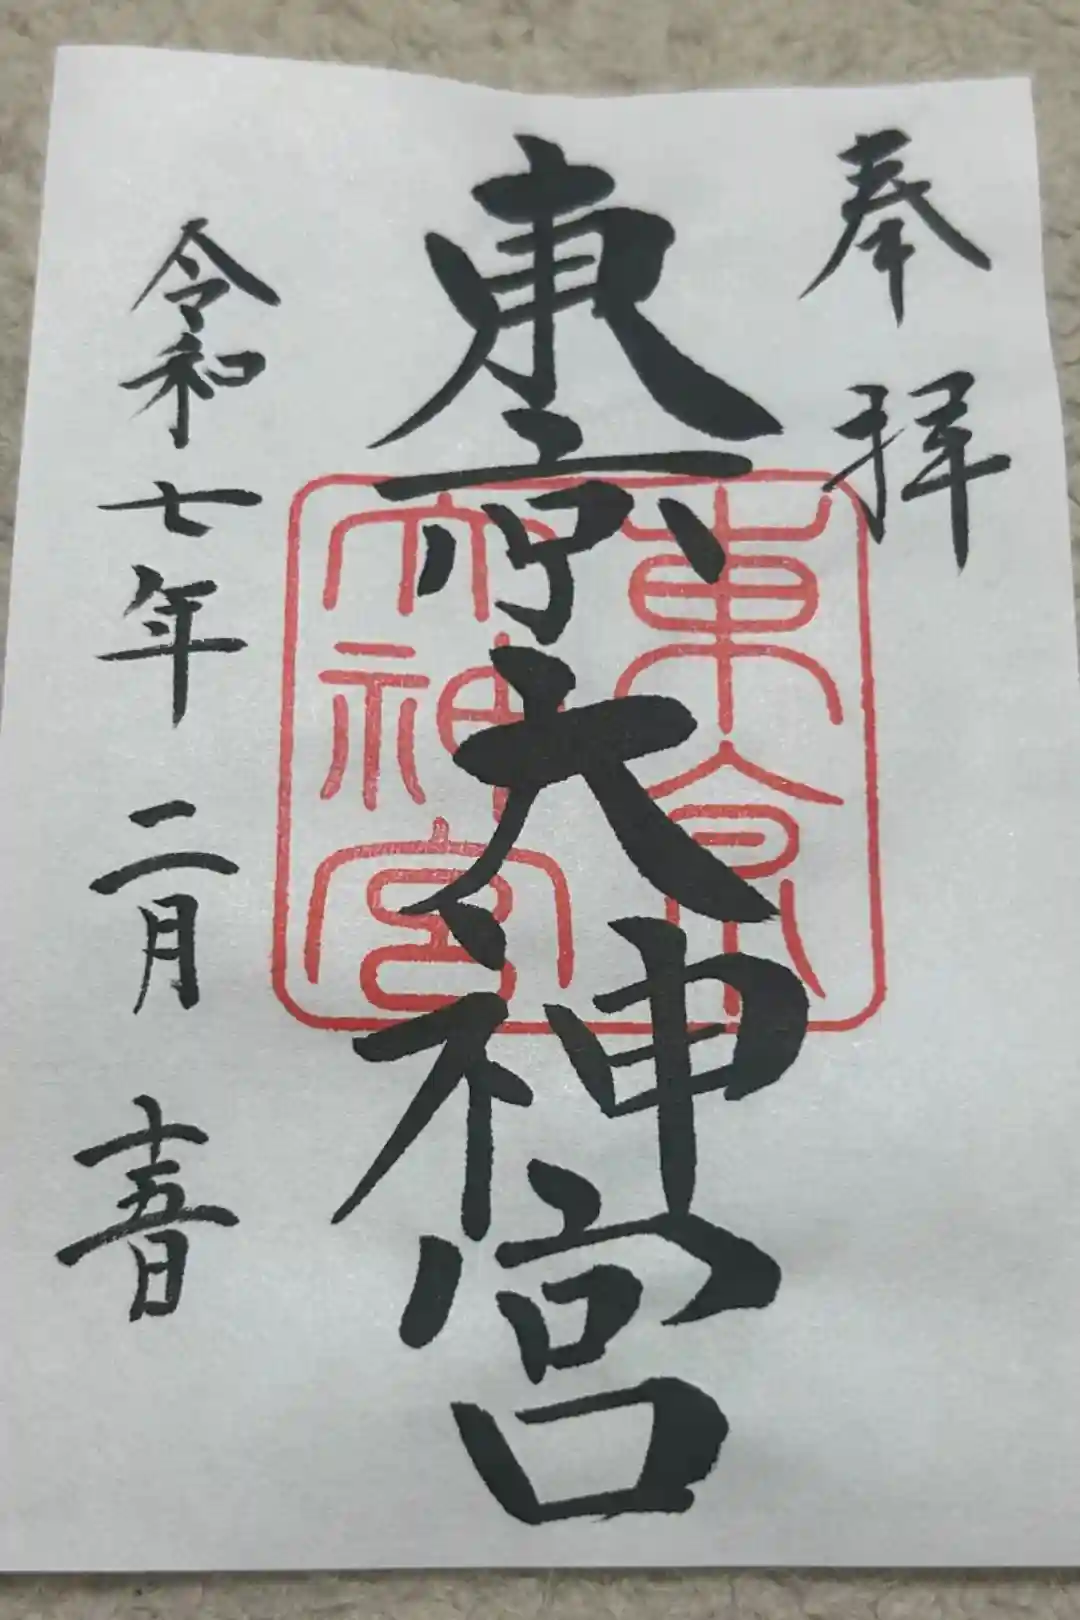 奉拝
東京大神宮
東京
大神宮
令和七年二月十五日